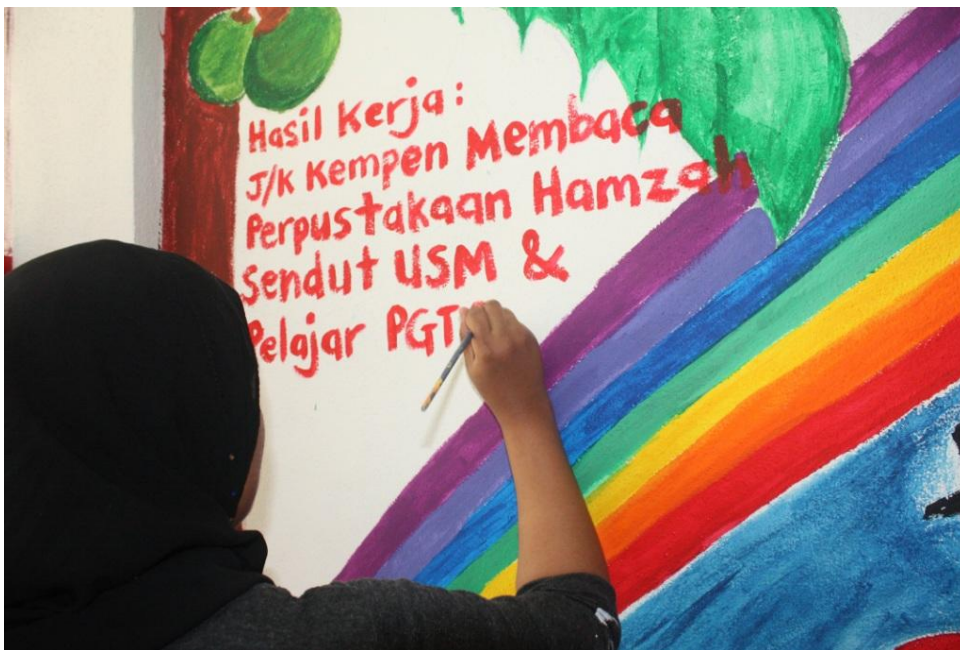 Hasil Kerja:
J/K Kempen Membaca
Perpustakaan Hamzah
Sendut USM &
Pelajar PGT